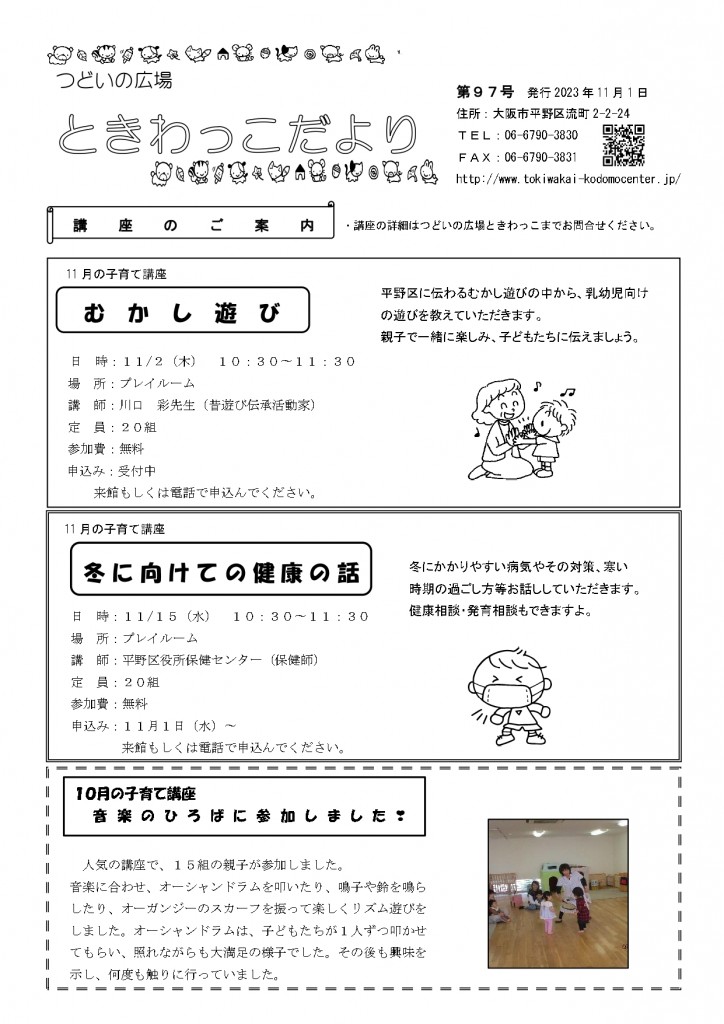 つどいの広場
ときわっこだより
第９７号　発行2023年11月1日
住所：大阪市平野区流町2-2-24
ＴＥＬ：06-6790-3830
ＦＡＸ：06-6790-3831
http://www.tokiwakai-kodomocenter.jp/
講座のご案内
・講座の詳細はつどいの広場ときわっこまでお問合せください。
11月の子育て講座
むかし遊び
平野区に伝わるむかし遊びの中から、乳幼児向け
の遊びを教えていただきます。
親子で一緒に楽しみ、子どもたちに伝えましょう。
日　時：１１/２（木）　１０：３０～１１：３０
場　所：プレイルーム
講　師：川口　彩先生（昔遊び伝承活動家）
定　員：２０組
参加費：無料
申込み：受付中
来館もしくは電話で申込んでください。
11月の子育て講座
冬に向けての健康の話
冬にかかりやすい病気やその対策、寒い
時期の過ごし方等お話ししていただきます。
健康相談・発育相談もできますよ。
日　時：１１/１５（水）　１０：３０～１１：３０
場　所：プレイルーム
講　師：平野区役所保健センター（保健師）
定　員：２０組
参加費：無料
申込み：１１月１日（水）～
来館もしくは電話で申込んでください。
10月の子育て講座
音楽のひろばに参加しました❣
人気の講座で、１５組の親子が参加しました。
音楽に合わせ、オーシャンドラムを叩いたり、鳴子や鈴を鳴ら
したり、オーガンジーのスカーフを振って楽しくリズム遊びを
しました。オーシャンドラムは、子どもたちが１人ずつ叩かせ
てもらい、照れながらも大満足の様子でした。その後も興味を
示し、何度も触りに行っていました。